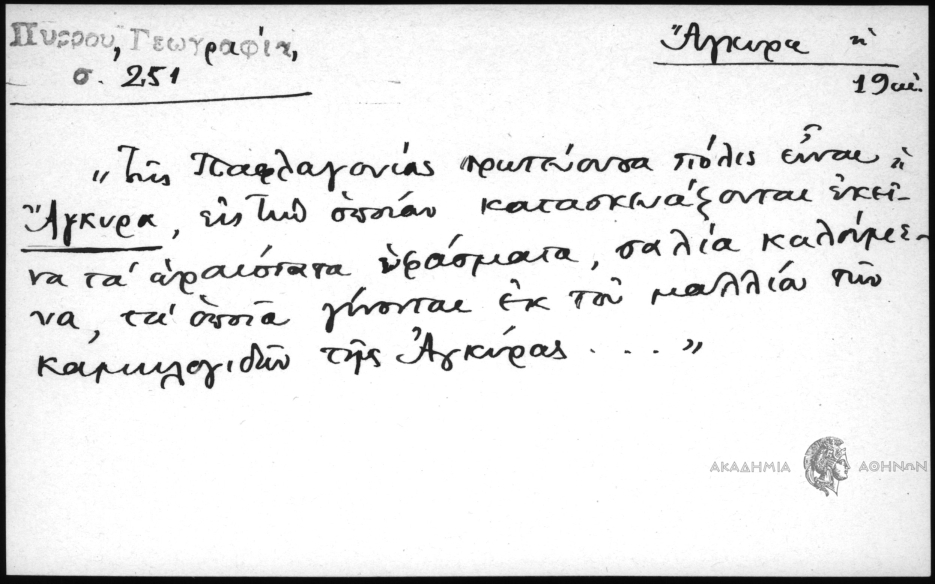 Πύρρου, Γεωγραφία,
σ. 251
Ἄγκυρα ἡ
19 αἰ.
„Τῆς Παφλαγονίας πρωτεύουσα πόλις εἶναι ἡ
Ἄγκυρα, εἰς τὴν ὁποίαν κατασκευάζονται ἐκεῖ-
να τὰ ὡραιότατα ὑφάσματα, σαλία καλούμε-
να, τὰ ὁποῖα γίνονται ἐκ τοῦ μαλλίου τῶν
καμηλογιδῶν τῆς Ἀγκύρας . . . . „
ΑΚΑΔΗΜΙΑ ΑΘΗΝΩΝ